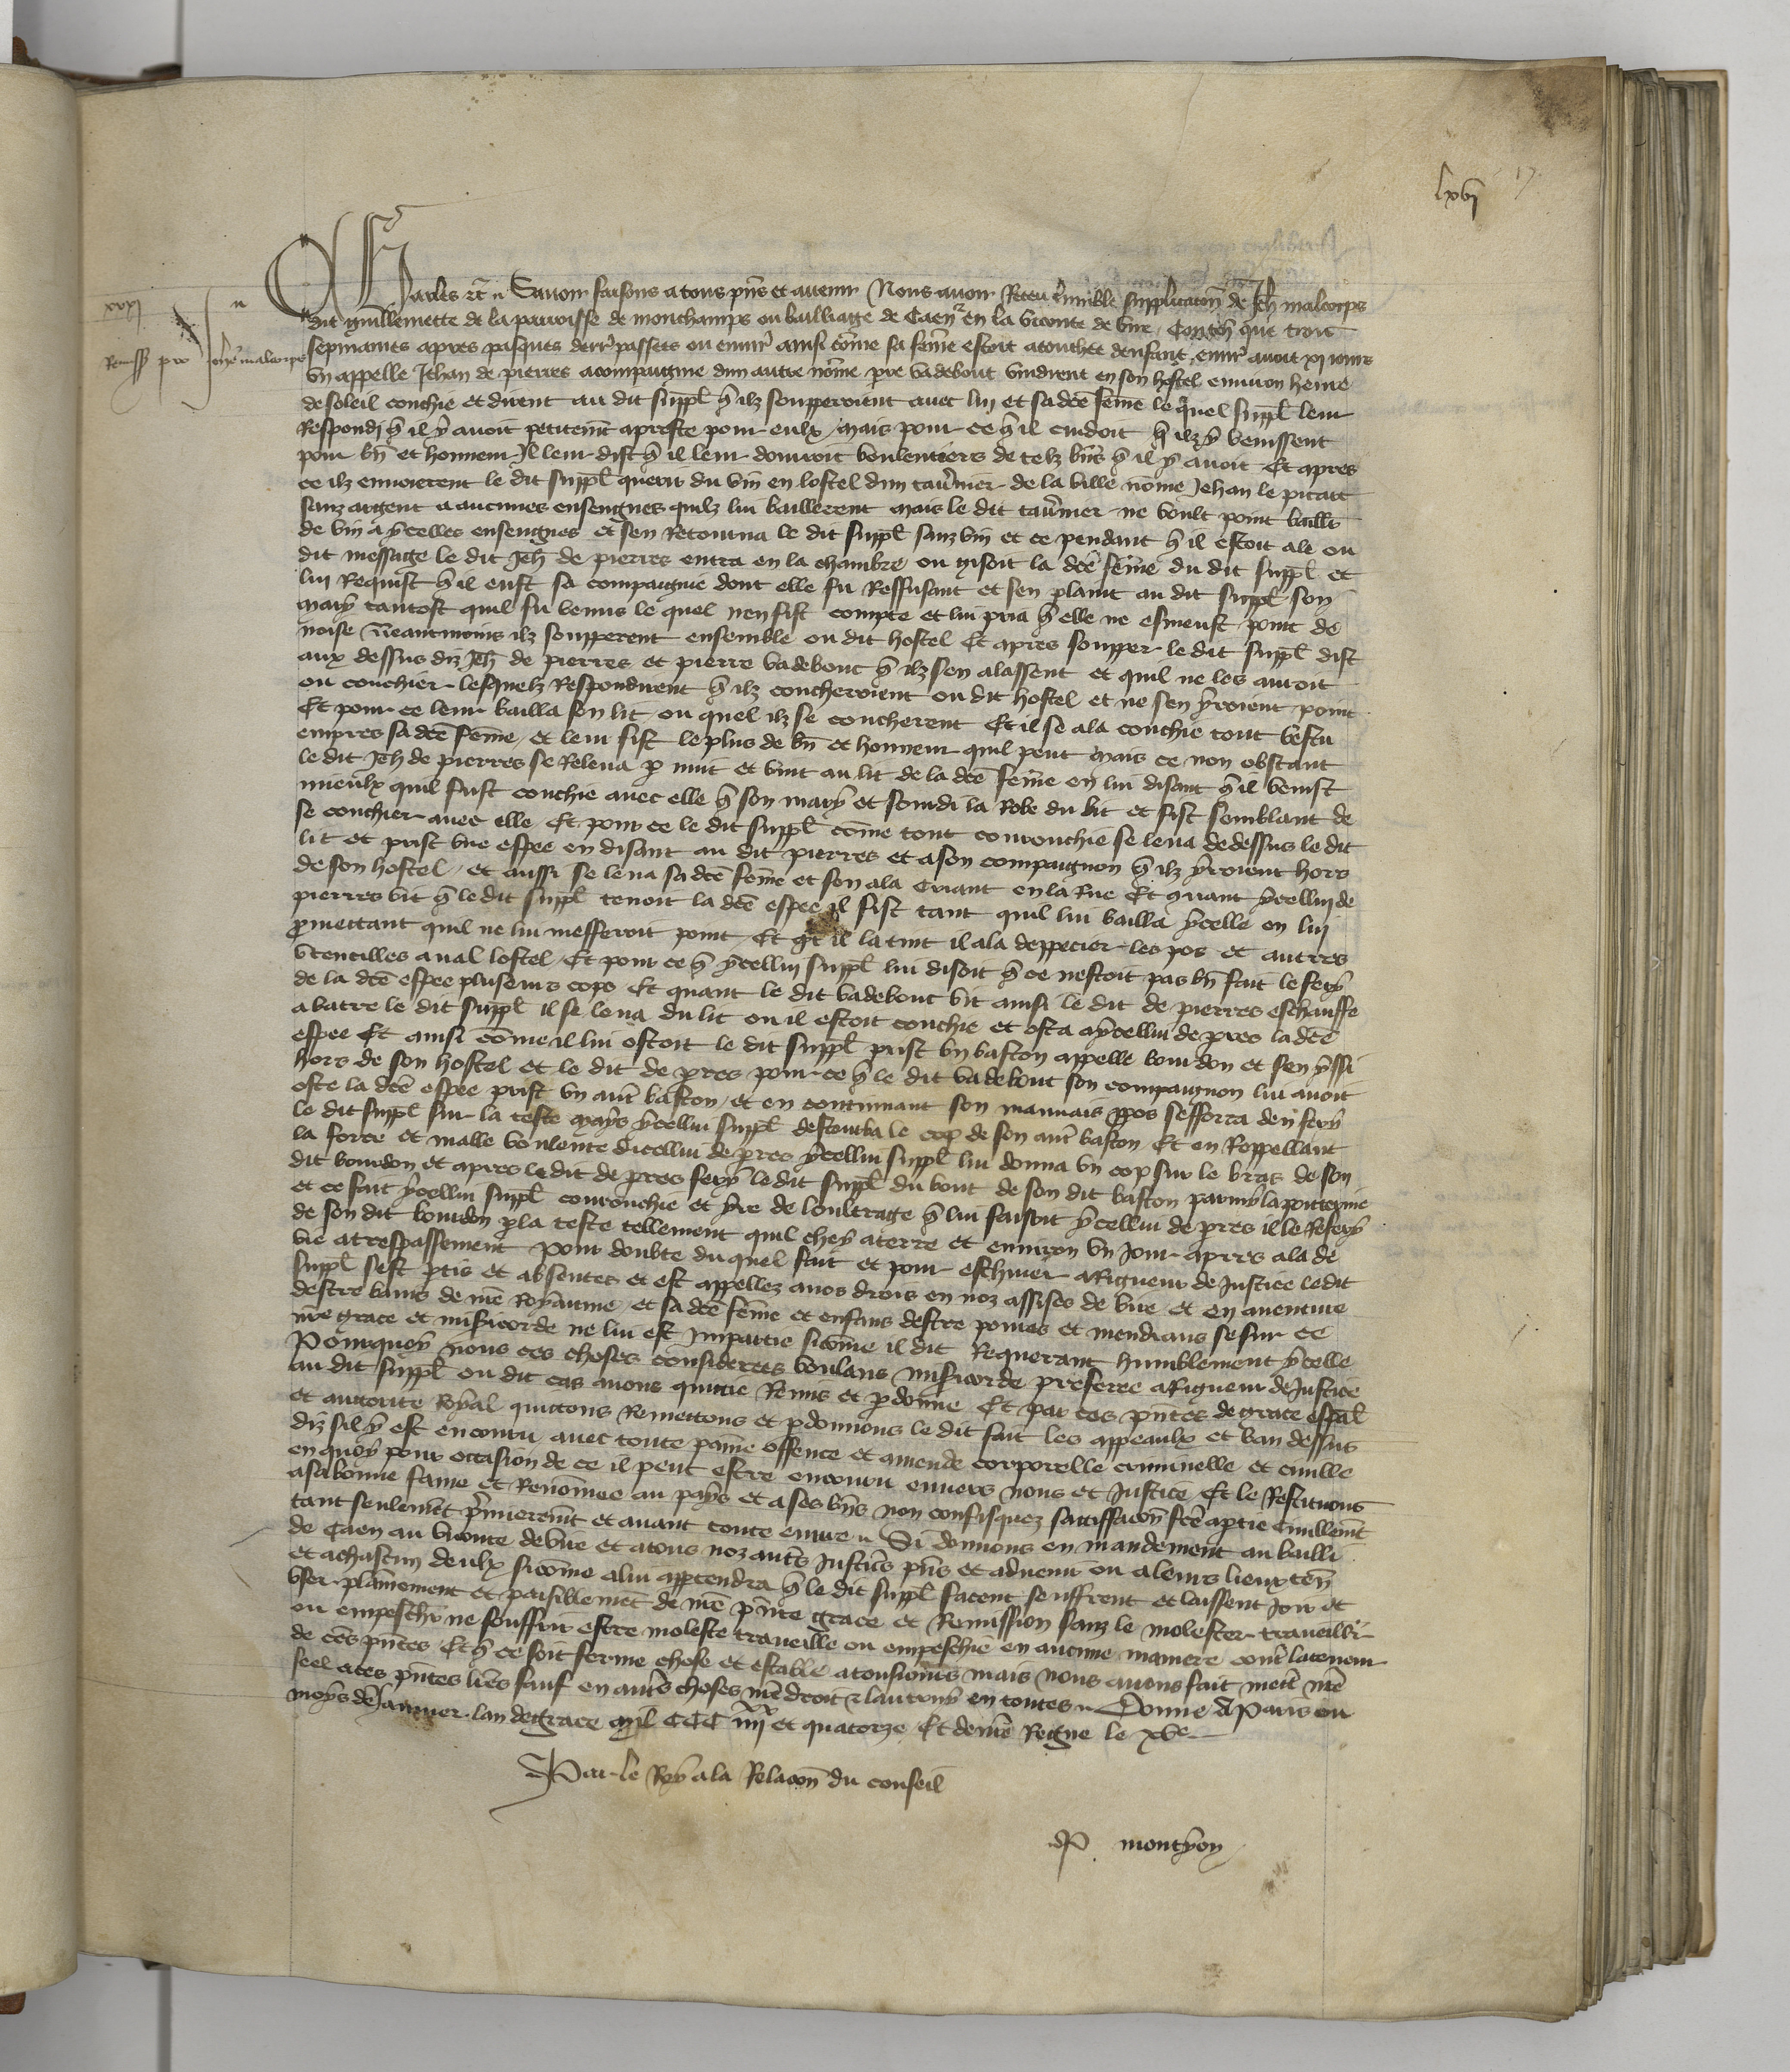 lxvj 17
xxxj
Remiss pro Johe malcorps
Charles &c̃ Savoir faisons a tous p̃ns et avenir Nous avoir Receu lumble supplicacōn de Jeh̄ malcorps
dit guillemette de la parroisse de monchamps ou bailliage de Caen en la viconte de vire, Conteñ que trois
sepmaines apres pasques derr̄ passees ou envir̄ ainsi cōme sa fēme estoit acouchee denfant, envir̄ avoit xj jours
vn appelle Jehan de pierres acompaigne dun autre nōme prē vadebout vindrent en son hostel environ heure
de soleil couchie et dirent au dit suppl̄ q̄ ilz soupperoient avec lui et sa dc̄e fēme le quel suppl̄ leur
Respondj q̄ il y avoit petitem̄t apreste pour eulx Mais pour ce q̄ il cuidoit q̄ ilz y venissent
pour bn̄ et honneur Il leur dist q̄ il leur donrroit voulentiers de telz bn̄s q̄ il y avoit Et apres
ce ilz envoierent le dit suppl̄ querir du vin en lostel dun tav̄nier de la ville nōme Jehan le picart
sanz argent a aucunes enseignes quilz lui baillerent Mais le dit tav̄nier ne voult point baillr̄
de vin a ycelles enseignes et sen Retourna le dit suppl̄ sanz vin et ce pendant q̄ il estoit ale ou
dit message le dit Jeh̄ de pierres entra en la chambre ou gisoit la dc̄e fēme du dit suppl̄ et
lui Requist q̄ il eust sa compaignie dont elle fu Reffusant et sen plaint au dit suppl̄ son
mary tantost quil fu venus le quel nen fist compte et lui pria q̄ elle ne esmeust point de
noise Neantmoins ilz soupperent ensemble ou dit hostel Et apres soupper le dit suppl̄ dist
aux dessus diz Jeh̄ de pierres et pierre vadebout q̄ ilz sen alassent et quil ne les auroit
ou couchier lesquelz Respondirent q̄ ilz coucheroient ou dit hostel et ne sen yroient point
Et pour ce leur bailla son lit ou quel ilz se coucherent Et il se ala couchie tout vestu
empres sa dc̄e fēme, et leur fist le plus de bn̄ et honneur quil peut Mais ce non obstant
le dit Jeh̄ de pierres se Releva p̄ nuit et vint au lit de la dc̄e fēme en lui disant q̄ il venist
mieulx quil fust couchie avec elle q̄ son mary et sourdi la Robe du lit et fist semblant de
se couchier avec elle Et pour ce le dit suppl̄ cōme tout courrouchie se leva dedessus le dit
lit et prist vne espee en disant au dit pierres et a son compaignon q̄ ilz yroient hors
de son hostel, et aussi se leva sa dc̄e fēme et sen ala criant en la Rue Et quant ycellui de
pierres vit q̄ le dit suppl̄ tenoit la dc̄e espee il fist tant quil lui bailla ycelle en lui
p̄mettant quil ne lui mefferoit point, Et q̄nt il la tint il ala deppecier les pos et autres
vtencilles aval lostel, Et pour ce q̄ ycellui suppl̄ lui disoit q̄ ce nestoit pas bn̄ fait le fery
de la dc̄e espee pluseurs cops Et quant le dit vadebout vit ainsi le dit de pierres eschauffe
a batre le dit suppl̄ il se leva du lit ou il estoit couchie et osta a ycellui de p̄res la dc̄e
espee Et ainsi cōme il lui ostoit le dit suppl̄ prist vn baston appelle bourdon et sen yssi
hors de son hostel et le dit de p̄res pour ce q̄ le dit vadebout son compaignon lui avoit
oste la dc̄e espee prist vn aut̄ baston, et en continuant son mauvais p̄pos sefforca den fery
le dit suppl̄ sur la teste Mays ycellui suppl̄ destourba le cop de son aut̄ baston Et en Reppellant
la force et malle voulente dicellui de p̄res ycellui suppl̄ lui donna vn cop sur le bras de son
dit bourdon et apres le dit de p̄res fery le dit suppl̄ du bout de son dit baston parmy la poitterine
et ce fait ycellui suppl̄ courrouchie et yre de loultrage q̄ lui faisoit ycellui de p̄res il le Refery
de son dit bourdon p̄ la teste tellement quil chey a terre et environ vn jour apres ala de
vie a trespassement Pour doubte du quel fait et pour eschuier a Rigueur de Justice le dit
suppl̄ sest p̄tis et absentes et est appellez a nos drois en noz assises de vire et en aventure
destre banis de nr̄e Royaume, et sa dc̄e fēme et enfans destre povres et mendians se sur ce
nr̄e grace et misericorde ne lui est Impartie sicōme il dit Requerant humblement ycelle
Pourquoy nous ces choses considerees voulans misericorde preferer a Rigueur de Justice
au dit suppl̄ ou dit cas avons quittie Remis et p̄donne Et par ces p̄ntes de grace esp̄al
et autorite Royal quittons Remettons et p̄donnons le dit fait les appeaulx et ban dessus
diz sil y est encouru avec toute paine offence et amende corporelle criminelle et civille
en quoy pour occasion de ce il peut estre encouru envers nous et Justice Et le Restituons
a sa bonne fame et Renōmee au pays et a ses bn̄s non confisquez satisffacōn fc̄e a p̄tie civillem̄t
tant seulem̄t p̄mierem̄t et avant toute euvre Si donnons en mandement au bailli
de Caen au viconte de vire et a tous noz aut̄s Justic̄s p̄ns et advenir ou a leurs lieux teñ
et a chascun deulx sicōme a lui app̄tendra q̄ le dit suppl̄ facent seuffrent et laissent Joir et
vser plainement et paisiblem̄t de nr̄e p̄nte grace et Remission sanz le molester travaillr̄
ou empeschr̄ ne souffrir estre moleste travaille ou empeschie en aucune maniere cont̄ la teneur
de ces p̄ntes Et q̄ ce soit ferme chose et estable a tousiours mais Nous avons fait mett̄ nr̄e
seel a ces p̄ntes lr̄es sauf en aut̄s choses nr̄e droit & lautruy en toutes Donne A Paris ou
moys de Janvier lan de grace Mil CCC iiijxx et quatorze Et de nr̄e Regne le xve
Par le Roy a la Relacōn du conseil
P. montyon